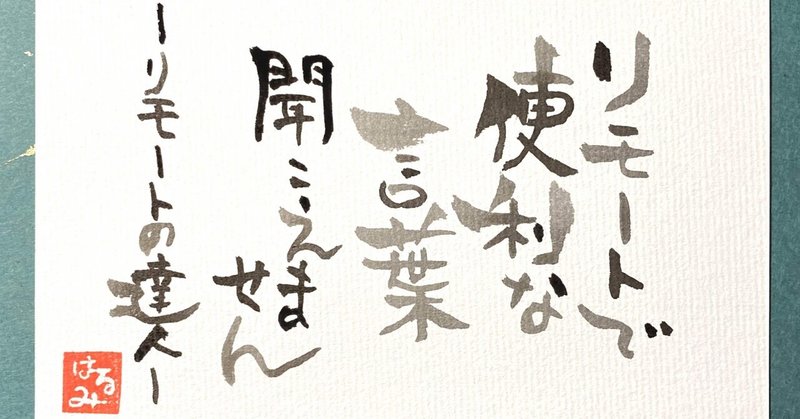 リモートで
便利な
言葉
聞こえません
ーリモートの達人ー
はるみ